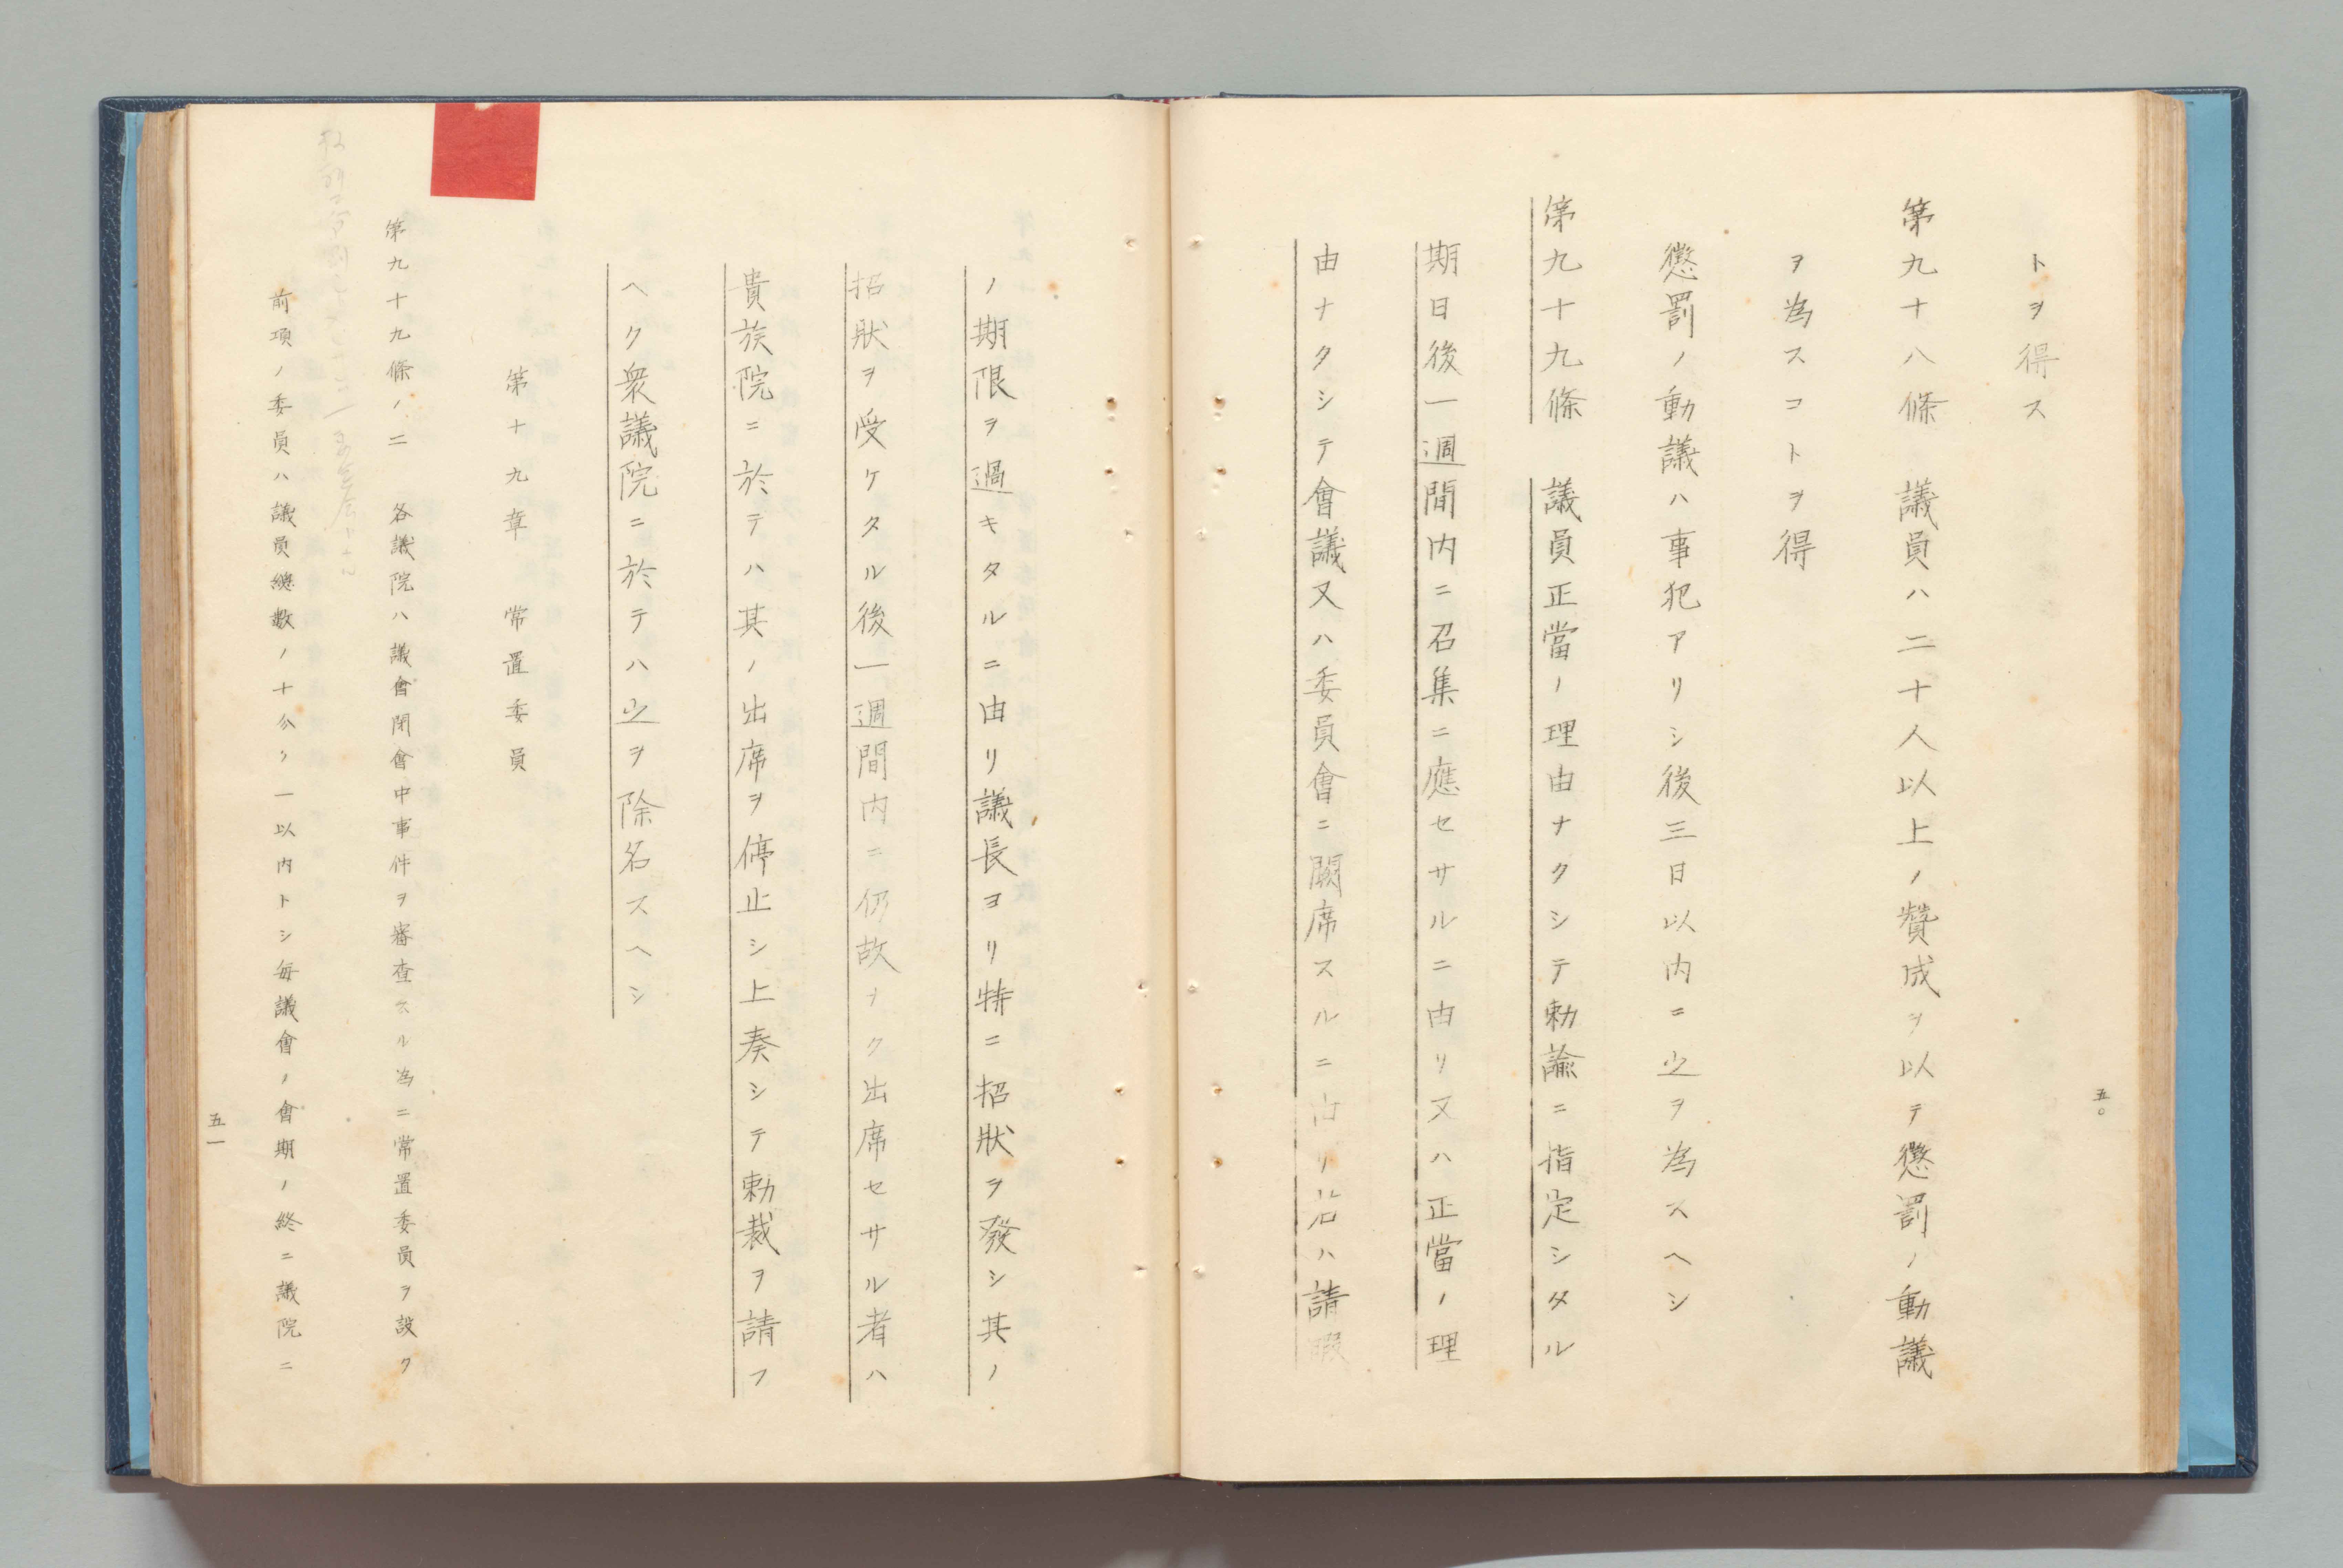 トヲ得ス
第九十八條　議員ハ二十人以上ノ贊成ヲ以テ懲罰ノ動議
ヲ為スコトヲ得
懲罰ノ動議ハ事犯アリシ後三日以内ニ之ヲ為スヘシ
第九十九條　議員正當ノ理由ナクシテ勅諭ニ指定シタル
期日後一週間内ニ召集ニ應セサルニ由リ又ハ正當ノ理
由ナクシテ會議又ハ委員會ニ闕席スルニ由リ若ハ請暇
五〇
ノ期限ヲ過キタルニ由リ議長ヨリ特ニ招狀ヲ發シ其ノ
招狀ヲ受ケタル後一週間内ニ仍故ナク出席セサル者ハ
貴族院ニ於テハ其ノ出席ヲ停止シ上奏シテ勅裁ヲ請フ
ヘク衆議院ニ於テハ之ヲ除名スヘシ
第十九章　常置委員
第九十九條ノ二　各議院ハ議會閉會中事件ヲ審査スル為ニ常置委員ヲ設ク
前項ノ委員ハ議員總數ノ十分ノ一以内トシ每議會ノ會期ノ終ニ議院ニ
五一